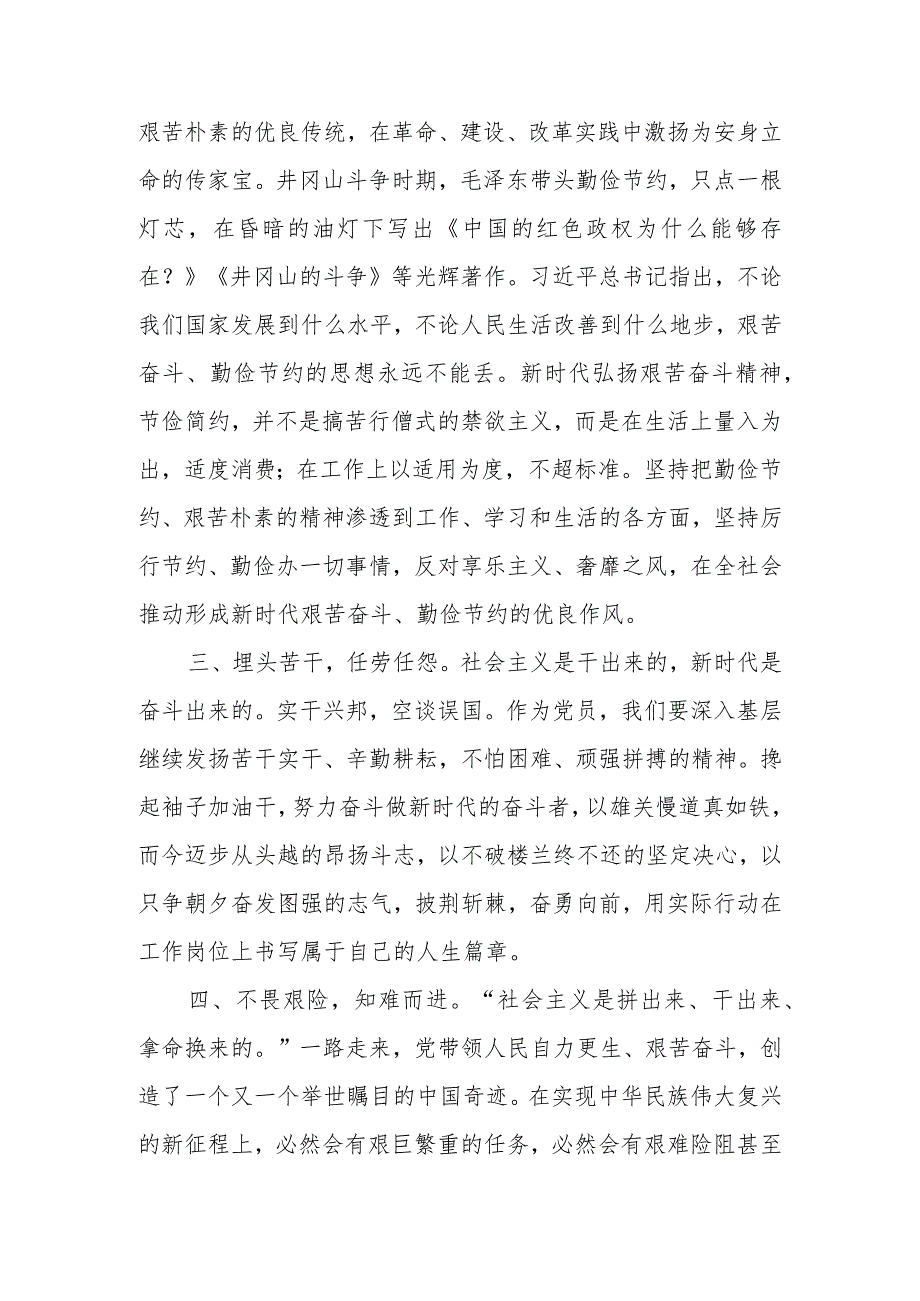 艰苦朴素的优良传统，在革命、建设、改革实践中激扬为安身立
命的传家宝。井冈山斗争时期，毛泽东带头勤俭节约，只点一根
灯芯，在昏暗的油灯下写出《中国的红色政权为什么能够存
在？》《井冈山的斗争》等光辉著作。习近平总书记指出，不论
我们国家发展到什么水平，不论人民生活改善到什么地步，艰苦
奋斗、勤俭节约的思想永远不能丢。新时代弘扬艰苦奋斗精神，
节俭简约，并不是搞苦行僧式的禁欲主义，而是在生活上量入为
出，适度消费；在工作上以适用为度，不超标准。坚持把勤俭节
约、艰苦朴素的精神渗透到工作、学习和生活的各方面，坚持厉
行节约、勤俭办一切事情，反对享乐主义、奢靡之风，在全社会
推动形成新时代艰苦奋斗、勤俭节约的优良作风。
三、埋头苦干，任劳任怨。社会主义是干出来的，新时代是
奋斗出来的。实干兴邦，空谈误国。作为党员，我们要深入基层
继续发扬苦干实干、辛勤耕耘，不怕困难、顽强拼搏的精神。搀
起袖子加油干，努力奋斗做新时代的奋斗者，以雄关慢道真如铁，
而今迈步从头越的昂扬斗志，以不破楼兰终不还的坚定决心，以
只争朝夕奋发图强的志气，披荆斩棘，奋勇向前，用实际行动在
工作岗位上书写属于自己的人生篇章。
四、不畏艰险，知难而进。“社会主义是拼出来、干出来、
拿命换来的。”一路走来，党带领人民自力更生、艰苦奋斗，创
造了一个又一个举世瞩目的中国奇迹。在实现中华民族伟大复兴
的新征程上，必然会有艰巨繁重的任务，必然会有艰难险阻甚至